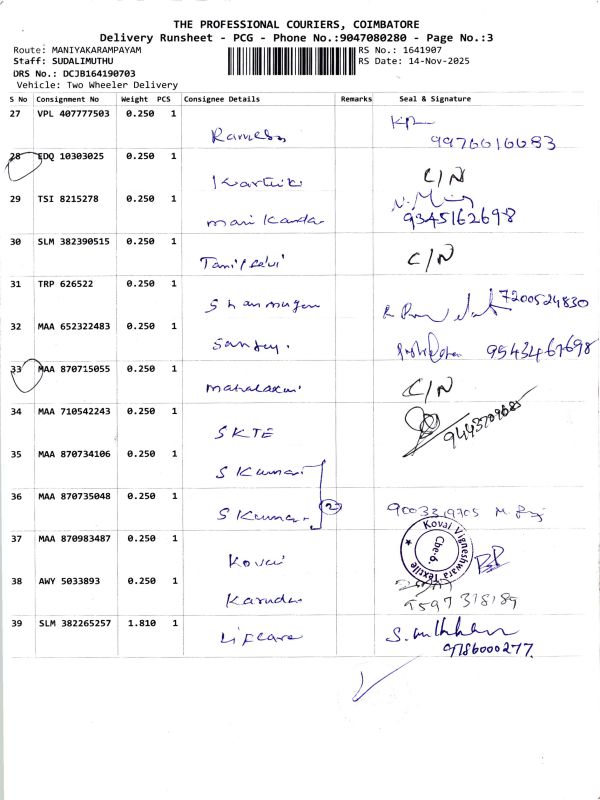 THE PROFESSIONAL COURIERS, COIMBATORE
Delivery Runsheet - PCG - Phone No.:9047080280 - Page No.:3
Route: MANIYAKARAMPAYAM RS No.: 1641907
Staff: SUDALIMUTHU RS Date: 14-Nov-2025
DRS No.: DCJB164190703
Vehicle: Two Wheeler Delivery
S No Consignment No Weight PCS Consignee Details Remarks Seal & Signature
27 VPL 407777503 0.250 1
Ramesh 9976616683
28 EDQ 10303025 0.250 1
Karthik C/N
29 TSI 8215278 0.250 1
mani kanda 9345162698
30 SLM 382390515 0.250 1
Tamil selvi C/N
31 TRP 626522 0.250 1
Shanmugam 7200524830
32 MAA 652322483 0.250 1
Sanjay. 9543467698
33 MAA 870715055 0.250 1
mahalaxmi C/N
34 MAA 710542243 0.250 1
SKTE 9443709685
35 MAA 870734106 0.250 1
S Kumar
36 MAA 870735048 0.250 1
S Kumar 2 9003319705
37 MAA 870983487 0.250 1
Kovai
Kovai Vigneshwara Textile
Cbe-6.
38 AWY 5033893 0.250 1
Karuda 9597318189
39 SLM 382265257 1.810 1
Lifcare
9786000277.